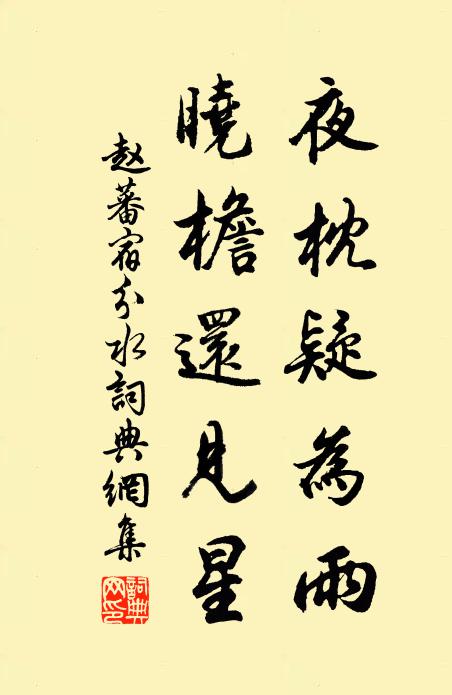 夜枕疑為雨
曉檐還見星
赵蕃宿分水詞典網集
詞典网印